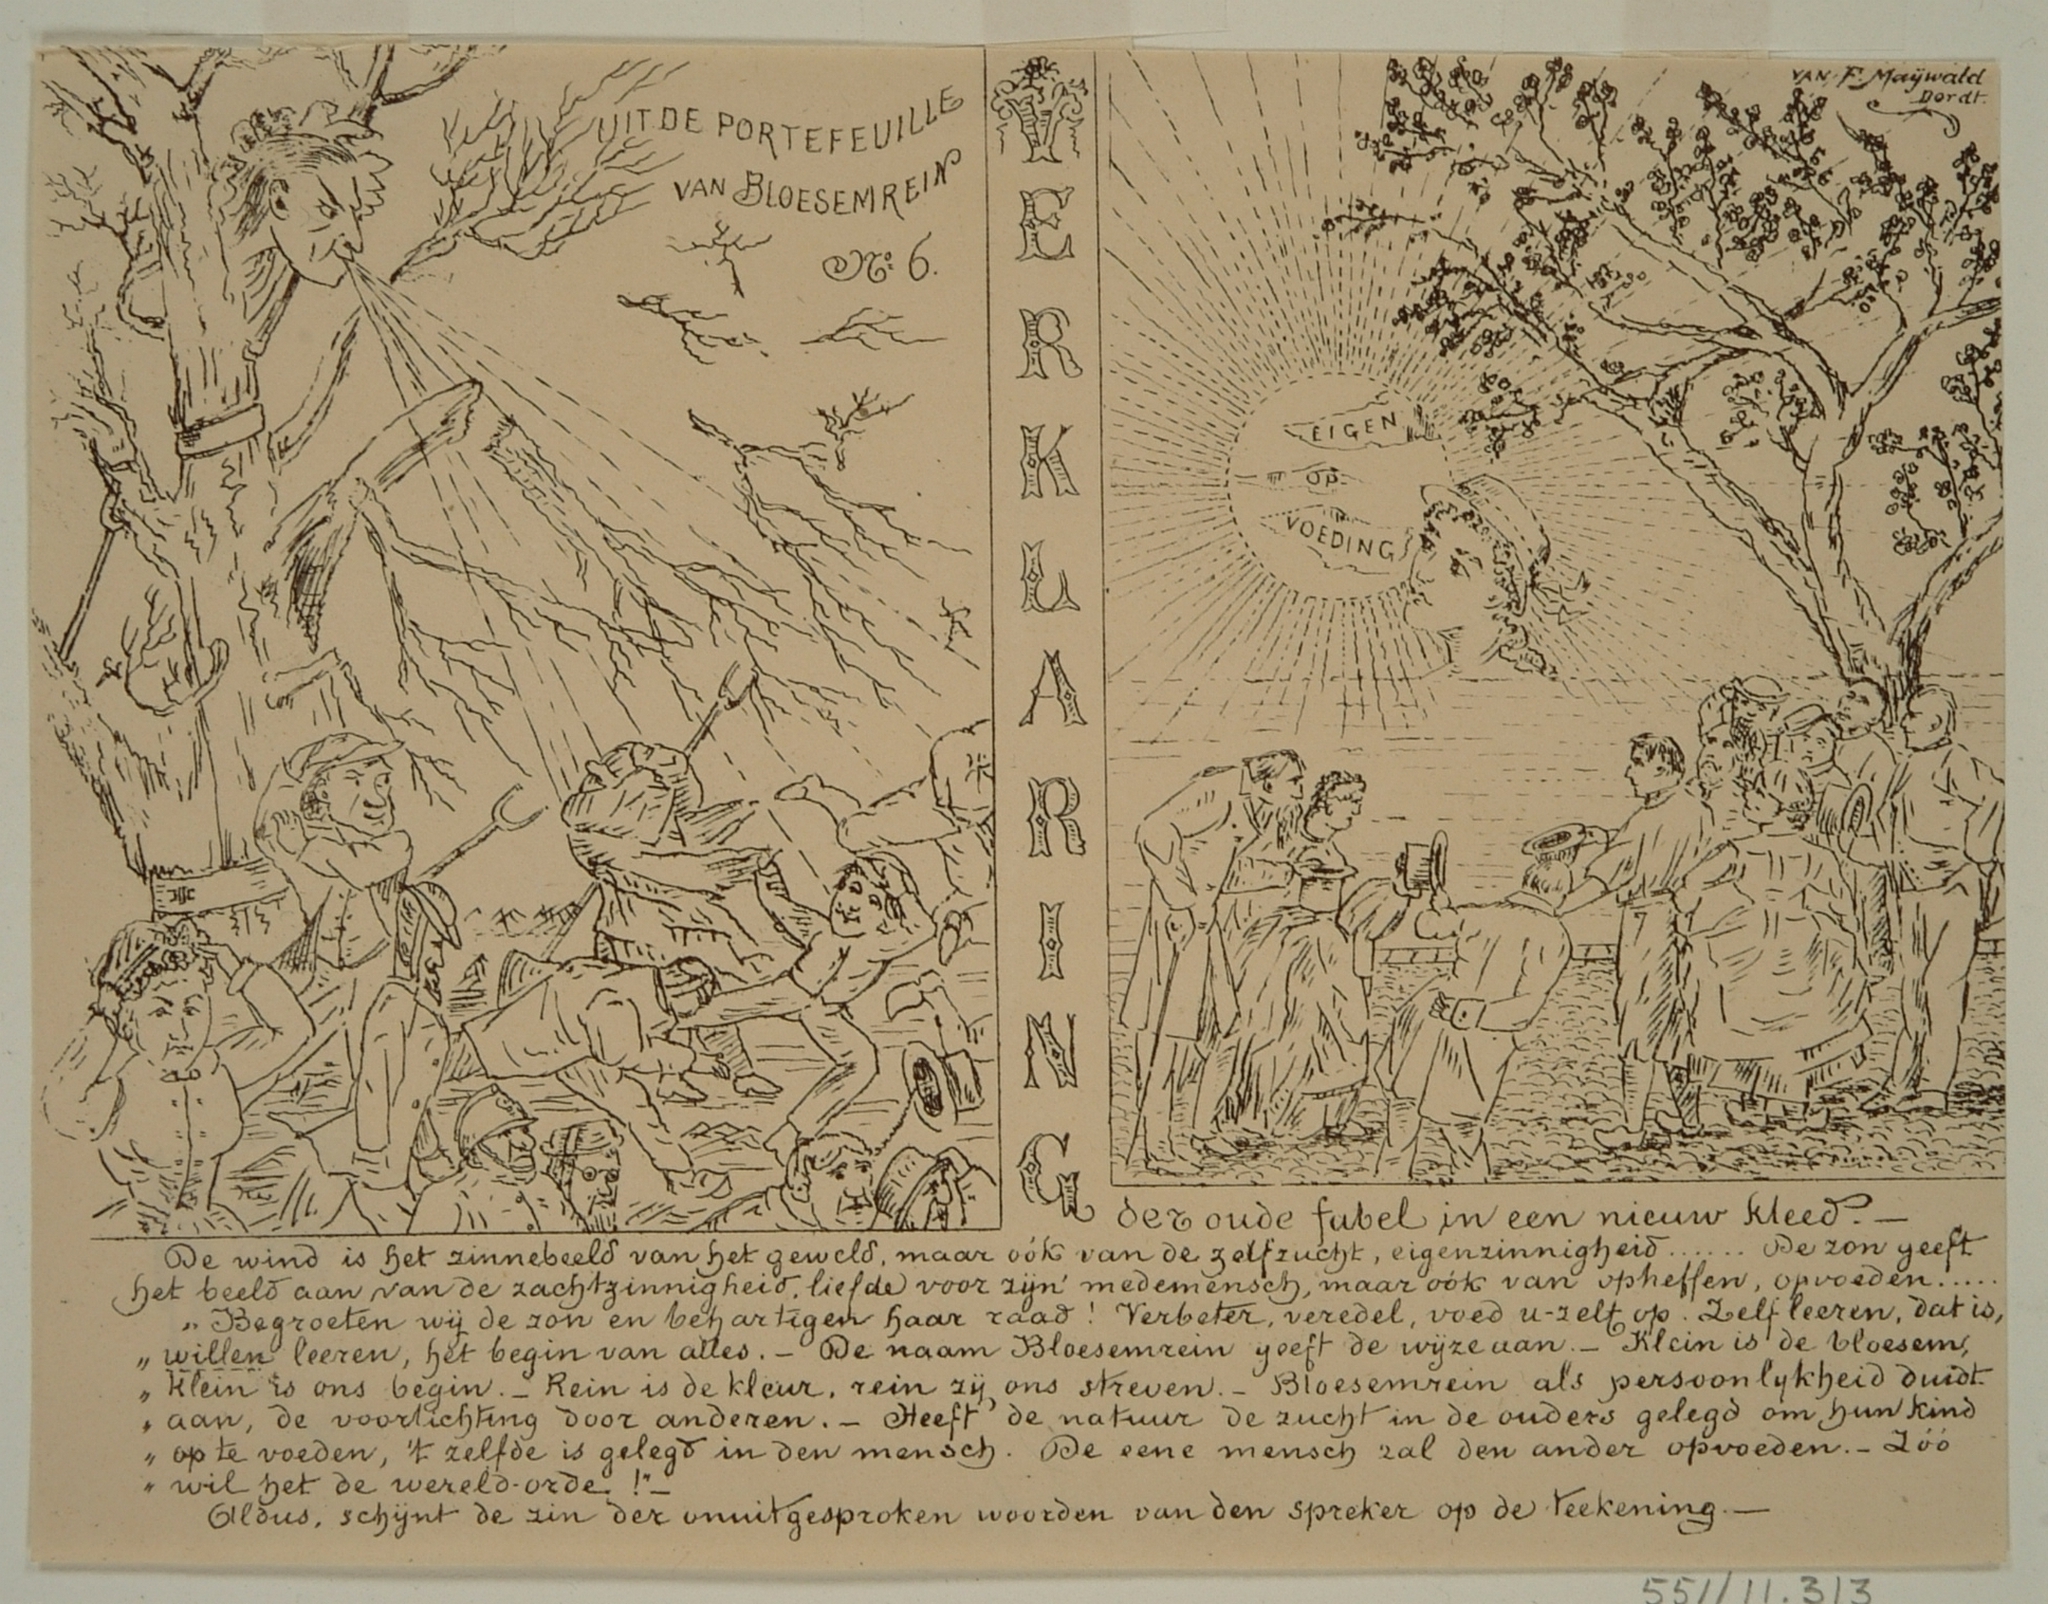 UIT DE PORTEFEUILLE
VAN BLOESEMREIN
No: 6.
VERKLARING
VAN F. Maÿwald
Dordt.
EIGEN
OP
VOEDING
der oude fabel in een nieuw kleed. —
De wind is het zinnebeeld van het geweld, maar oók van de zelfzucht, eigenzinnigheid...... De zon geeft
het beeld aan van de zachtzinnigheid, liefde voor zijn' medemensch, maar oók van opheffen, opvoeden.....
„ Begroeten wij de zon en behartigen haar raad! Verbeter, veredel, voed u-zelf op. Zelf leeren, dat is,
„ willen leeren, het begin van alles. — De naam Bloesemrein geeft de wijze aan. — Klein is de bloesem,
„ klein is ons begin. — Rein is de kleur, rein zij ons streven. — Bloesemrein als persoonlijkheid duidt
„ aan, de voorlichting door anderen. — Heeft de natuur de zucht in de ouders gelegd om hun kind
„ op te voeden, 't zelfde is gelegd in den mensch. De eene mensch zal den ander opvoeden. — Zóó
„ wil het de wereld-orde!" —
Aldus, schijnt de zin der onuitgesproken woorden van den spreker op de teekening. —
551/11.313